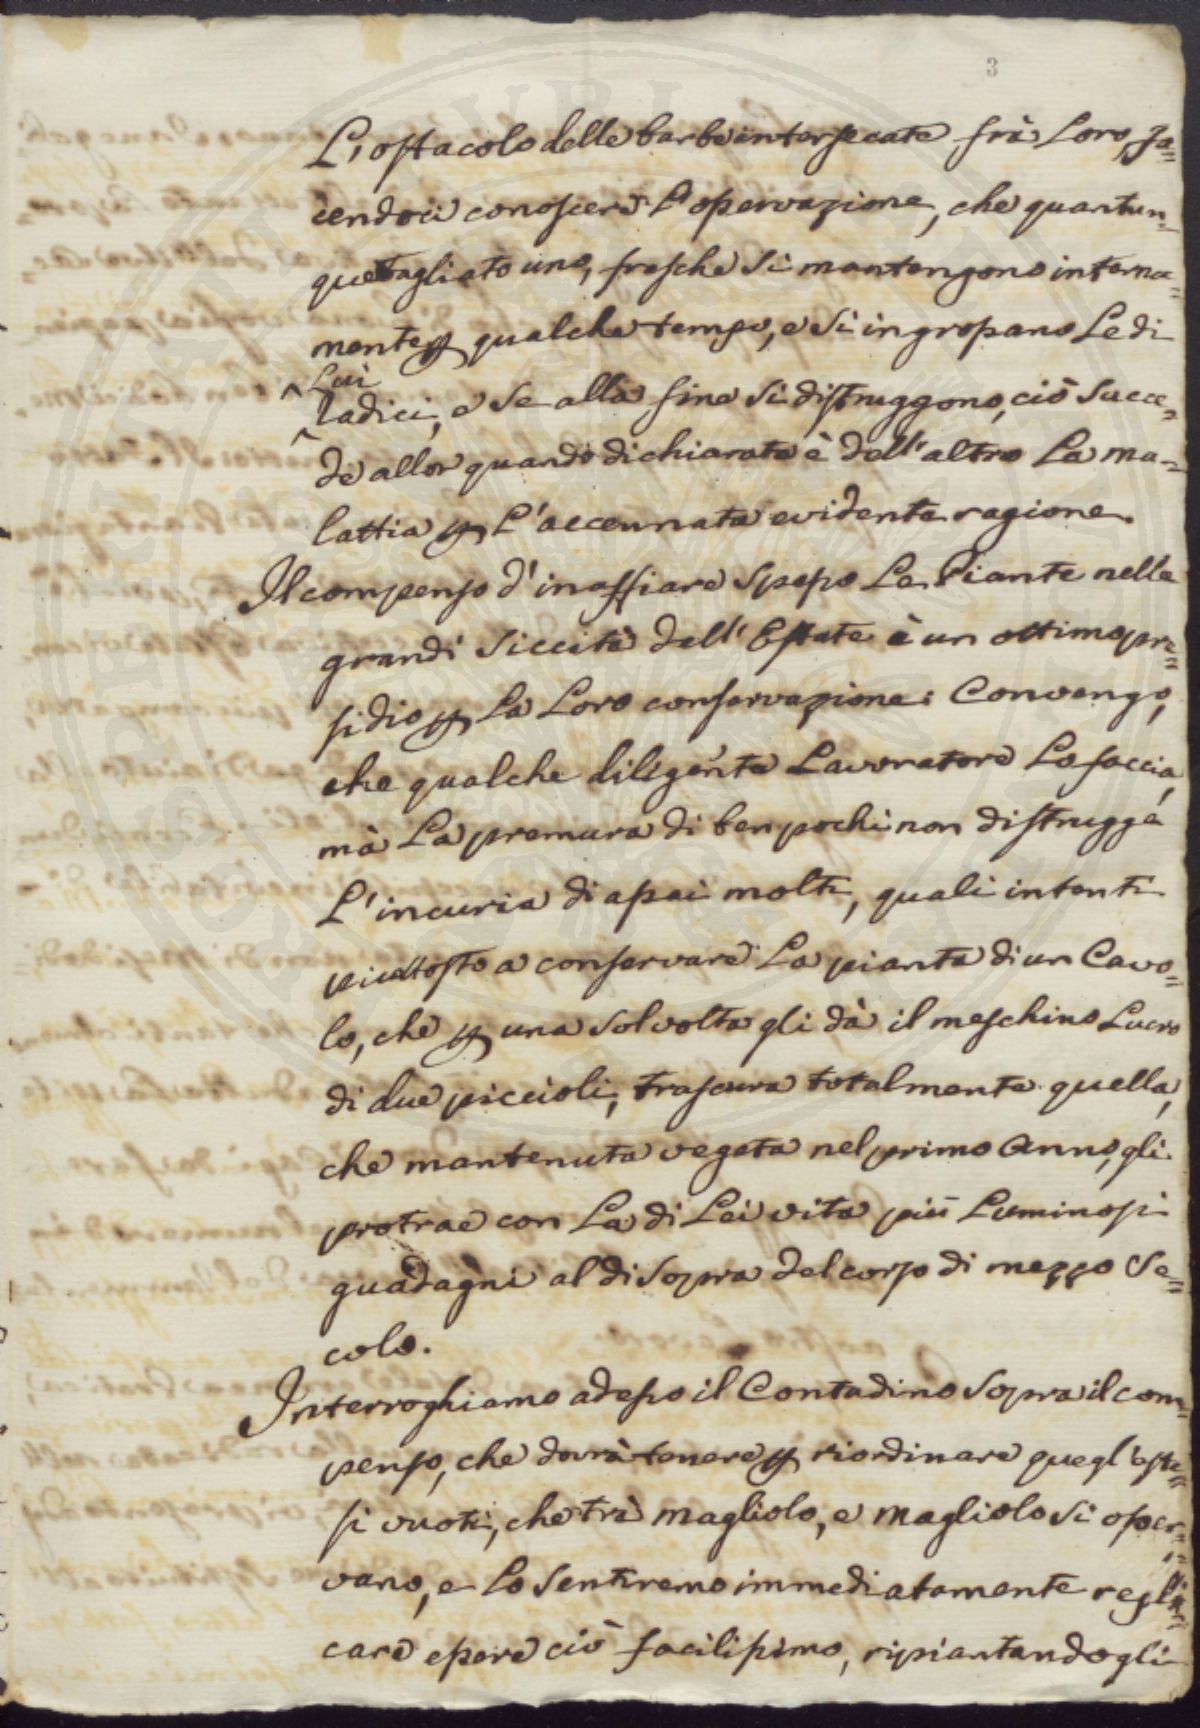 3
L'ostacolo delle barbe intersecate frà Loro, fa=
cendoci conoscere L'osservazione, che quantun=
que tagliato uno, fresche si mantengono interna=
mente per qualche tempo, e si ingrossano Le di
Lui
radici, e se alla fine si distruggono, ciò succe=
de allor quando dichiarata è dell'altro La ma=
lattia per L'accennata evidente ragione.
Il compenso d'inaffiare spesso Le Piante nelle
grandi siccità dell'Estate è un ottimo pre=
sidio per La Loro conservazione: Convengo,
che qualche diligente Lavoratore Lo faccia,
mà La premura di ben pochi non distrugge
L'incuria di assai molti, quali intenti
piuttosto a conservare La pianta di un Cavo=
lo, che per una sol volta gli dà il meschino Lucro
di due piccioli, trascura totalmente quella,
che mantenuta vegeta nel primo Anno, gli
protrae con La di Lei vita più Luminosi
guadagni al disopra del corso di mezzo Se=
colo.
Interroghiamo adesso il Contadino sopra il com=
penso, che dovrà tenere per riordinare quegl'istes=
si vuoti, che trà magliolo, e magliolo si osser=
vano, e Lo sentiremo immediatamente repli=
care essere ciò facilissimo, ripiantandogli